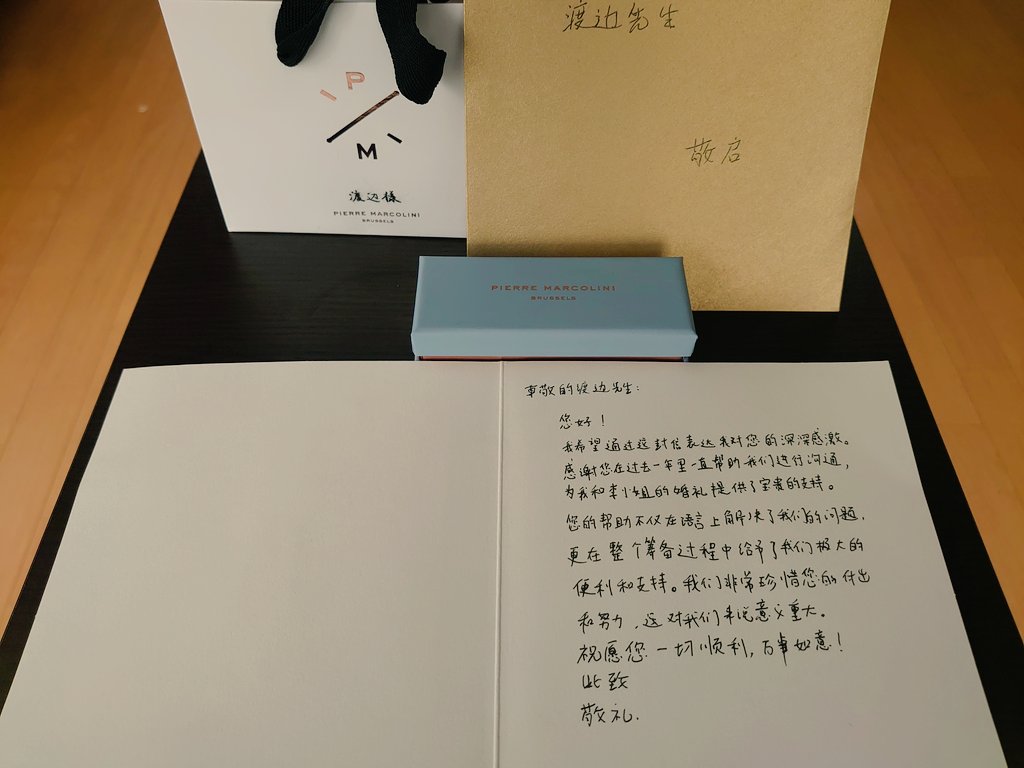 P
M
渡边樣
PIERRE MARCOLINI
BRUSSELS
渡边先生
敬启
PIERRE MARCOLINI
BRUSSELS
尊敬的渡边先生:
您好！
我希望通过这封信表达我对您的深深感激。
感谢您在过去一年里一直帮助我们进行沟通,
为我和李小姐的婚礼提供了宝贵的支持。
您的帮助不仅在语言上解决了我们的问题,
更在整个筹备过程中给予了我们极大的
便利和支持。我们非常珍惜您的付出
和努力,这对我们来说意义重大。
祝愿您一切顺利,万事如意!
此致
敬礼.